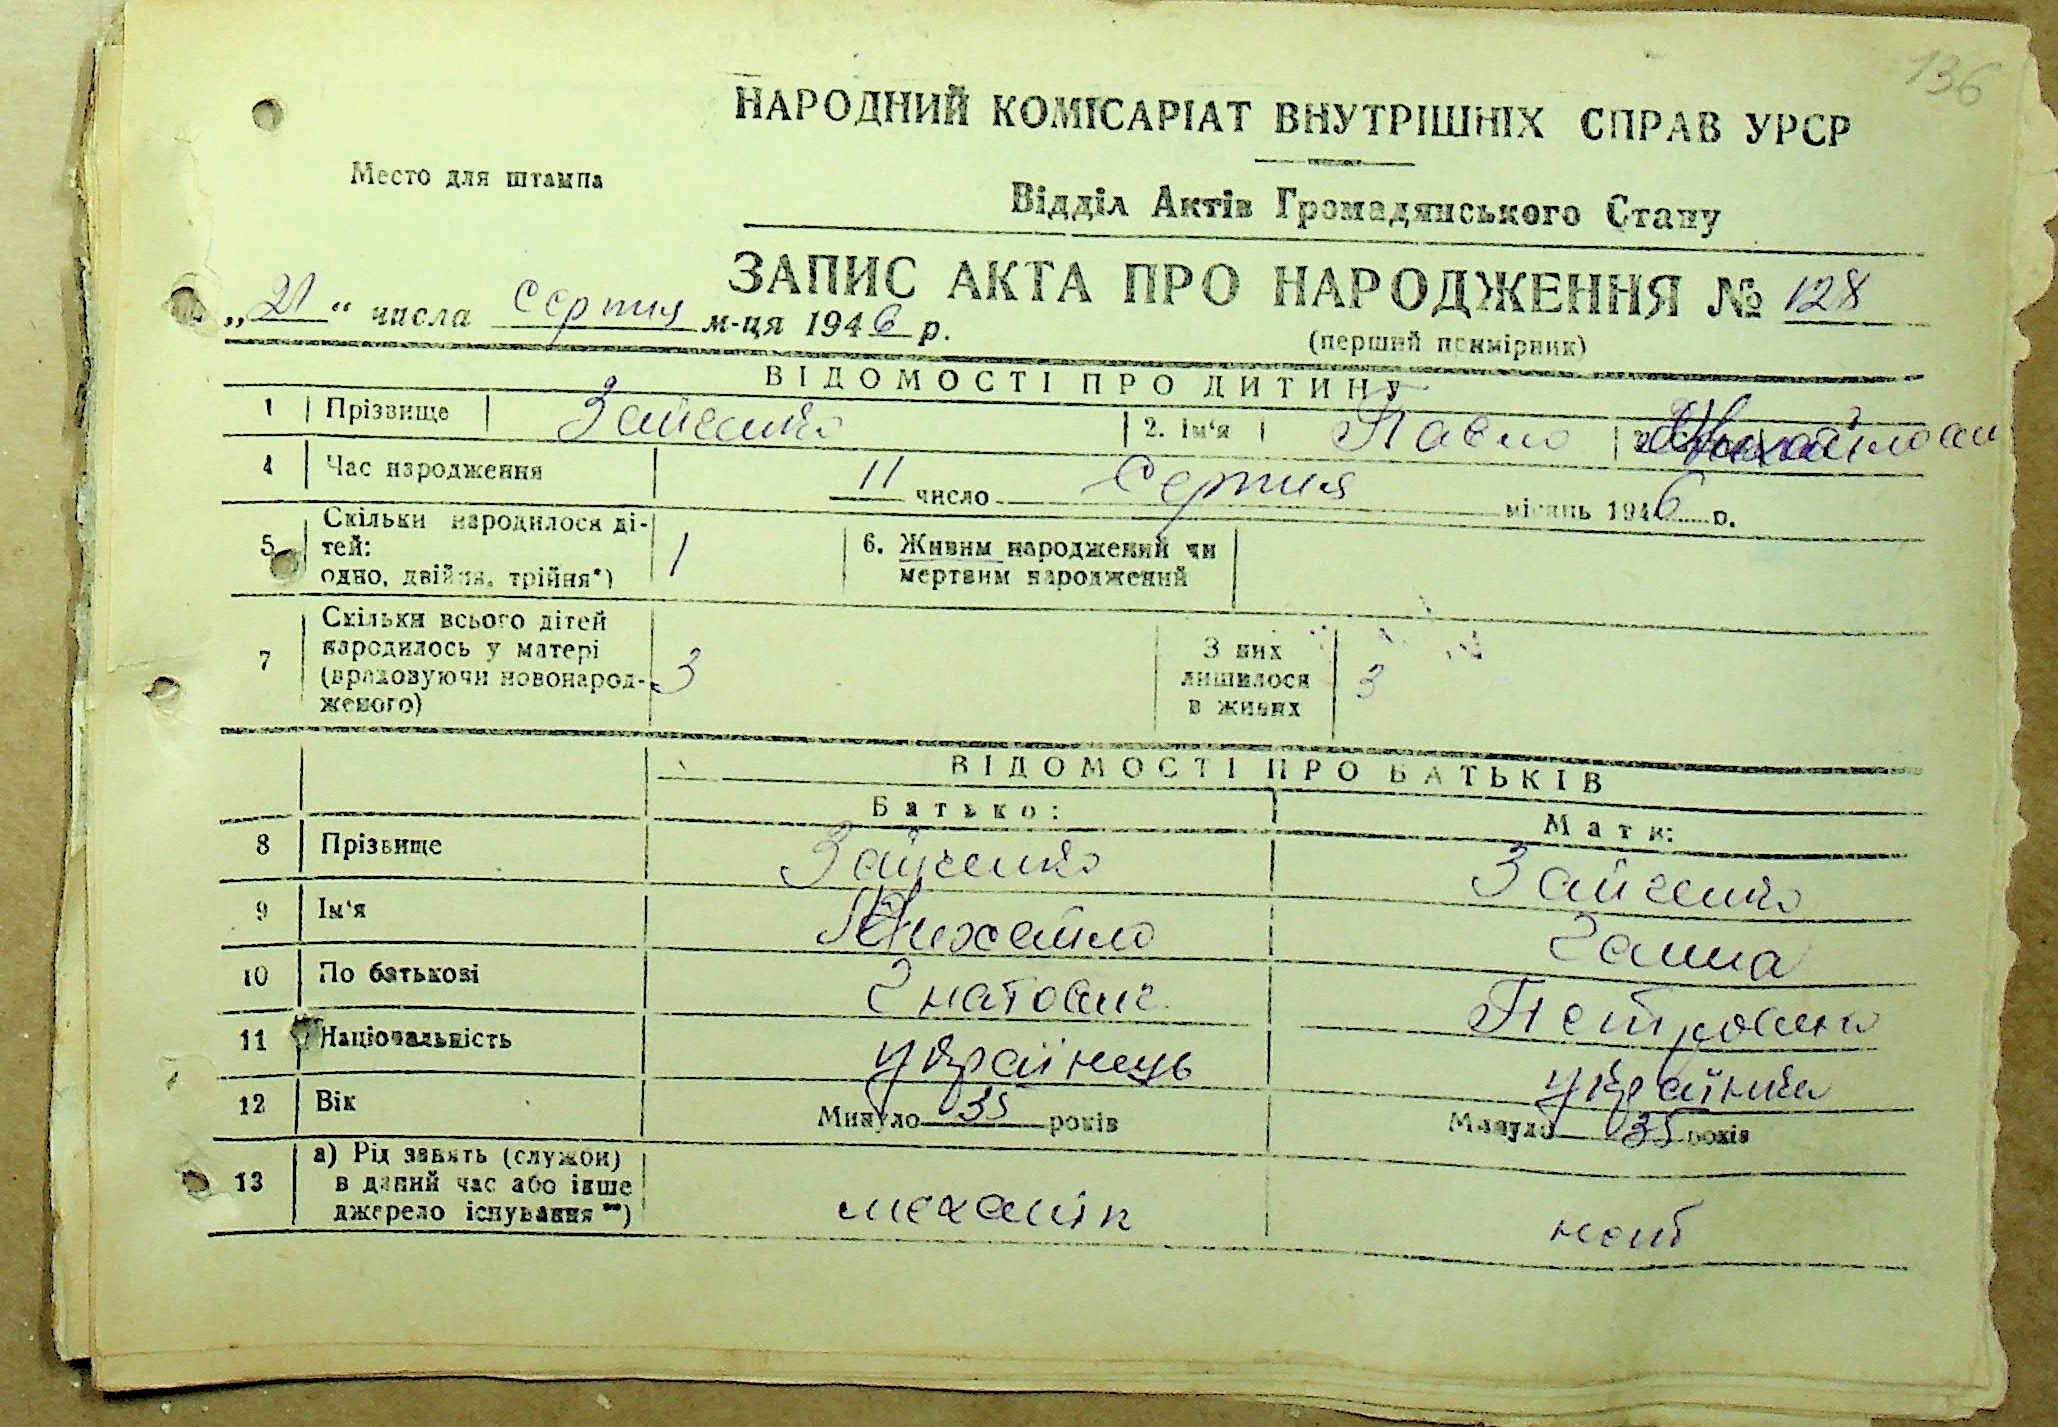 136
НАРОДНИЙ КОМІСАРІАТ ВНУТРІШНІХ СПРАВ УРСР
Место для штампа
Відділ Актів Громадянського Стану
ЗАПИС АКТА ПРО НАРОДЖЕННЯ № 128
„21“ числа серпня м-ця 1946 р.
(перший примірник)
ВІДОМОСТІ ПРО ДИТИНУ
1 Прізвище Зайченко 2. Ім'я Павло Михайлович
4 Час народження 11 число Серпня місяць 1946 р.
5 Скільки народилося ді-
тей:
одно, двійня, трійня*) 1
6. Живим народжений чи
мертвим народжений
7 Скільки всього дітей
народилось у матері
(враховуючи новонарод-
женого) 3
З них
лишилося
в живих 3
ВІДОМОСТІ ПРО БАТЬКІВ
Батько: Мати:
8 Прізвище Зайченко Зайченко
9 Ім'я Михайло Ганна
10 По батькові Гнатович Петровна
11 Національність українець українка
12 Вік Минуло 35 років Минуло 35 років
13 а) Рід занять (служби)
в даний час або інше
джерело існування **) механік